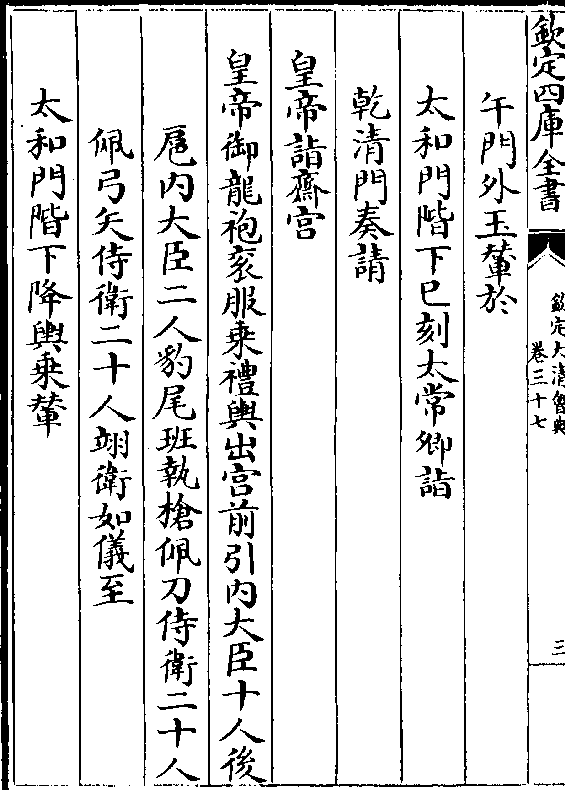 欽定四庫全書
欽定大清會典
卷三十七
三
午門外玉輦於
太和門階下巳刻太常卿詣
乾清門奏請
皇帝詣齋宫
皇帝御龍袍衮服乗禮輿出宫前引内大臣十人後
扈内大臣二人豹尾班執槍佩刀侍衛二十人
佩弓矢侍衛二十人翊衛如儀至
太和門階下降輿乗輦